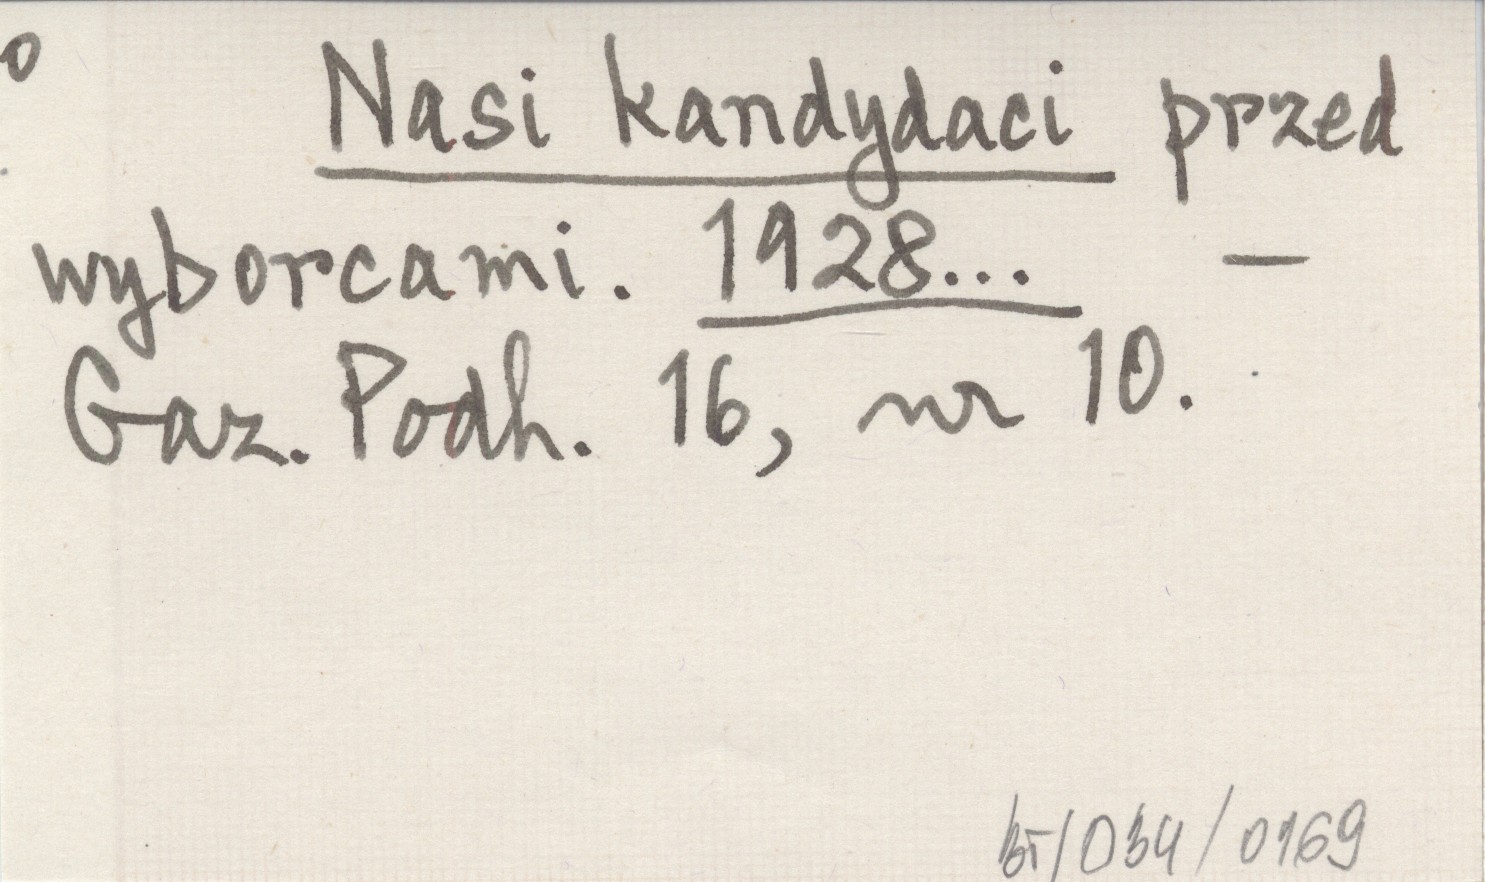 o
Nasi kandydaci przed
wyborcami. 1928... —
Gaz. Podh. 16, nr 10.
/034/0169